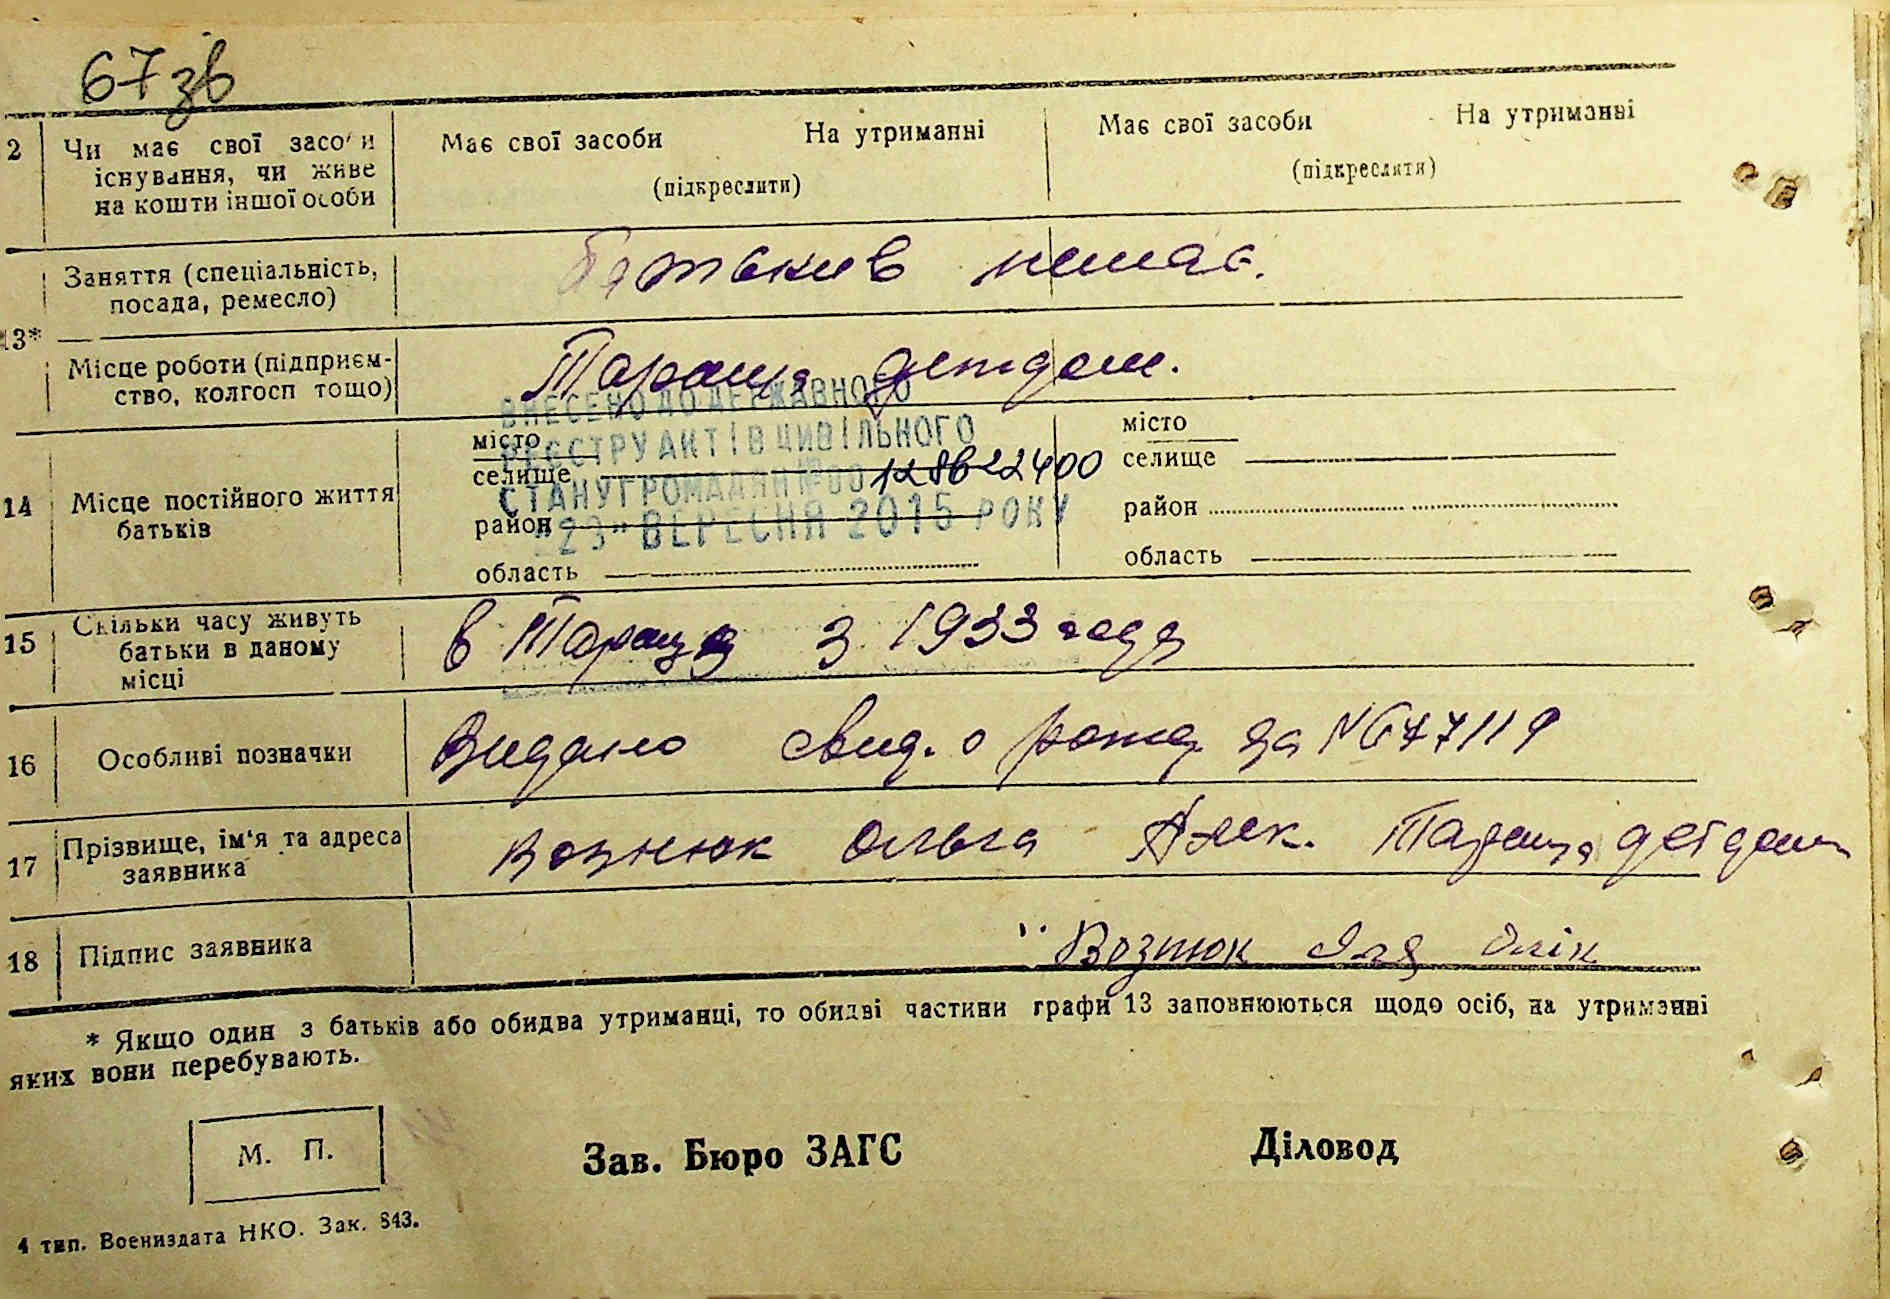 67 зв
2 Чи має свої засоби Має свої засоби На утриманні Має свої засоби На утриманні
існування, чи живе (підкреслити) (підкреслити)
на кошти іншої особи
Заняття (спеціальність, батьків немає.
посада, ремесло)
13*
Місце роботи (підприєм- Тараща детдом.
ство, колгосп тощо)
ВНЕСЕНО ДО ДЕРЖАВНОГО
РЕЄСТРУ АКТІВ ЦИВІЛЬНОГО
СТАНУ ГРОМАДЯН № 00128622400
"23" ВЕРЕСНЯ 2015 РОКУ
14 Місце постійного життя
батьків
місто місто
селище селище
район район
область область
15 Скільки часу живуть в Тараща з 1933 года
батьки в даному
місці
16 Особливі позначки Видано свид. о рожд за № 677119
17 Прізвище, ім'я та адреса Вознюк Ольга Алек. Тараща детдом
заявника
18 Підпис заявника Вознюк
* Якщо один з батьків або обидва утриманці, то обидві частини графи 13 заповнюються щодо осіб, на утриманні
яких вони перебувають.
М. П.
Зав. Бюро ЗАГС Діловод
4 тип. Воениздата НКО. Зак. 843.